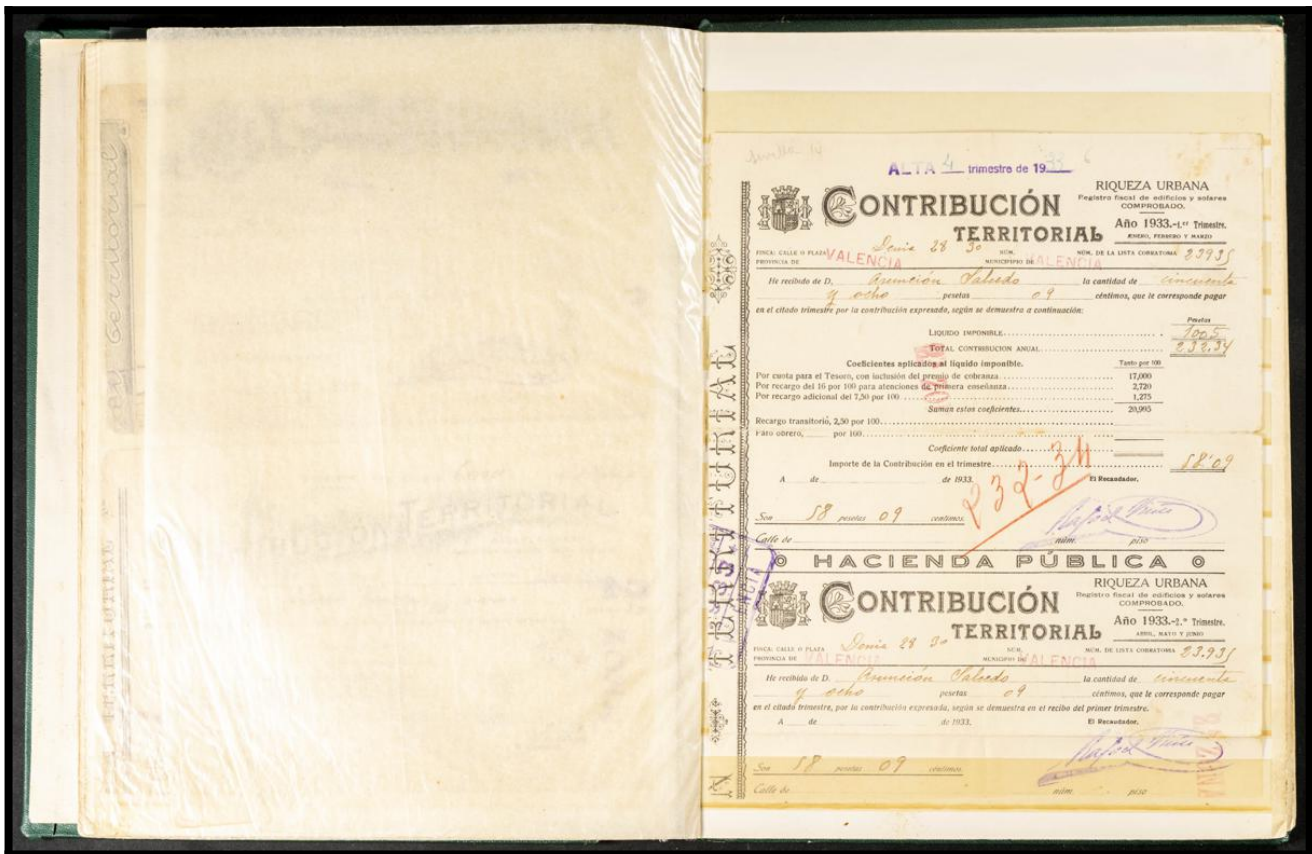 Sevilla 14
ALTA 4 trimestre de 1933
CONTRIBUCIÓN
TERRITORIAL
RIQUEZA URBANA
Registro fiscal de edificios y solares
COMPROBADO.
Año 1933.-1.er Trimestre.
ENERO, FEBRERO Y MARZO
FINCA: CALLE O PLAZA Denia 28 30 NÚM. NÚM. DE LA LISTA COBRATORIA 23935
PROVINCIA DE VALENCIA MUNICIPIO DE VALENCIA
He recibido de D. Asunción Salcedo la cantidad de cincuenta
y ocho pesetas 09 céntimos, que le corresponde pagar
en el citado trimestre por la contribución expresada, según se demuestra a continuación:
Pesetas
LIQUIDO IMPONIBLE 1005
TOTAL CONTRIBUCION ANUAL 232.34
Coeficientes aplicados al líquido imponible. Tanto por 100
Por cuota para el Tesoro, con inclusión del premio de cobranza 17,000
Por recargo del 16 por 100 para atenciones de primera enseñanza 2,720
Por recargo adicional del 7,50 por 100 1,275
Suman estos coeficientes 20,995
Recargo transitorio, 2,50 por 100
Paro obrero, por 100
Coeficiente total aplicado
Importe de la Contribución en el trimestre 58'09
232-34
A de de 1933. El Recaudador,
Son 58 pesetas 09 céntimos.
Calle de núm. piso
HACIENDA PÚBLICA
CONTRIBUCIÓN
TERRITORIAL
RIQUEZA URBANA
Registro fiscal de edificios y solares
COMPROBADO.
Año 1933.-2.º Trimestre.
ABRIL, MAYO Y JUNIO
FINCA: CALLE O PLAZA Denia 28 30 NÚM. NÚM. DE LISTA COBRATORIA 23.935
PROVINCIA DE VALENCIA MUNICIPIO DE VALENCIA
He recibido de D. Asunción Salcedo la cantidad de cincuenta
y ocho pesetas 09 céntimos, que le corresponde pagar
en el citado trimestre, por la contribución expresada, según se demuestra en el recibo del primer trimestre.
A de de 1933. El Recaudador,
Son 58 pesetas 09 céntimos.
Calle de núm. piso